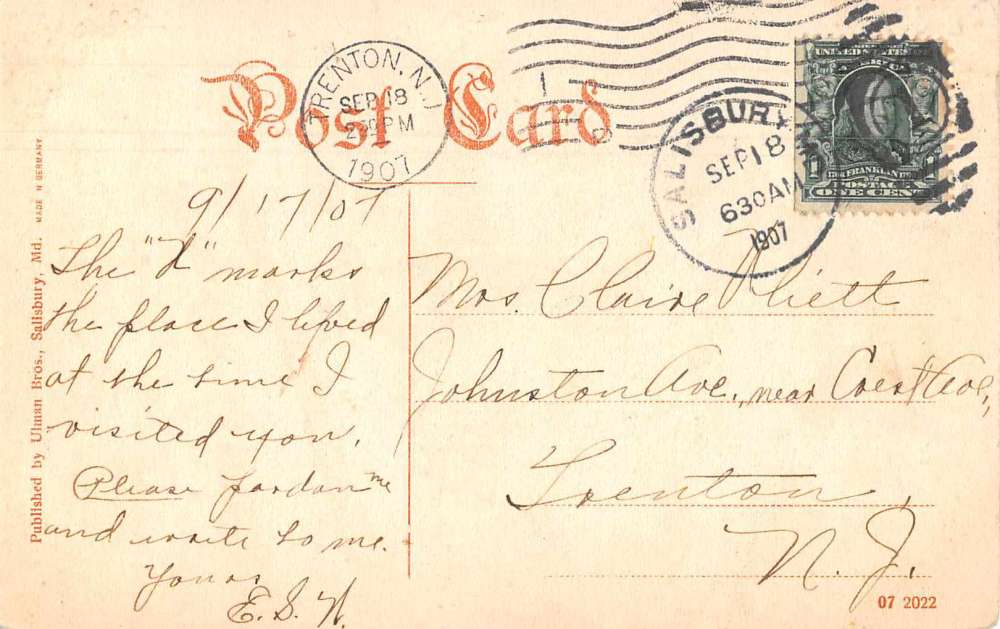 Post Card
TRENTON, N.J.
SEP 18
2 30 PM
1907
SALISBURY
SEP 18
630 AM
1907
UNITED STATES
FRANKLIN
POSTAGE
1 ONE CENT 1
Published by Ulman Bros., Salisbury, Md. MADE IN GERMANY
9/17/07
The "X" marks
the place I lived
at the time I
visited you.
Please pardon me
and write to me.
Yours
E. S. W.
Mrs. Claire Rhett
Johnston Ave., near Crest Ave.,
Trenton,
N. J.
07 2022